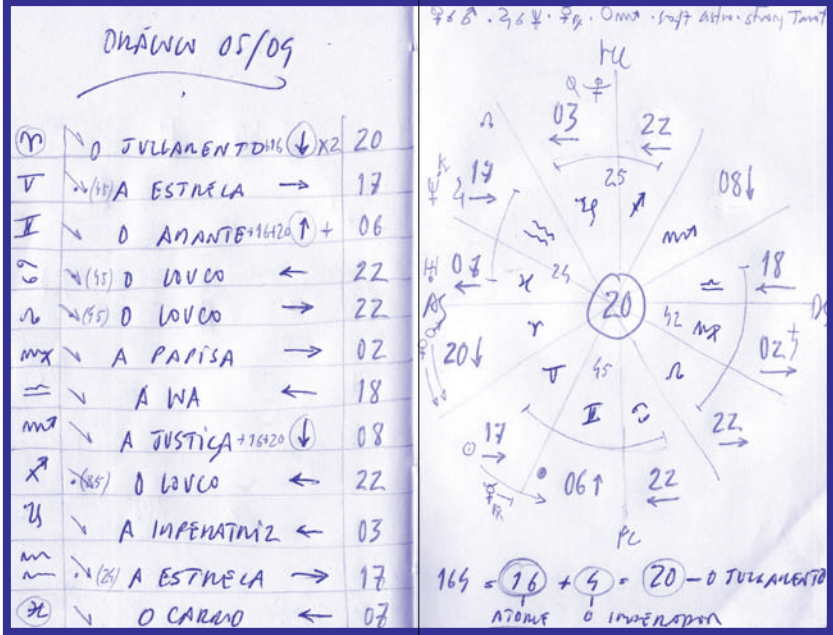 ORÁCULO 05/09
♈ O JULGAMENTO +16 ↓ x2 20
♉ (45) A ESTRELA → 17
♊ O AMANTE +16+20 ↑ + 06
♋ (45) O LOUCO ← 22
♌ (45) O LOUCO → 22
♍ A PAPISA → 02
♎ A LUA ← 18
♏ A JUSTIÇA +16+20 ↓ 08
♐ O LOUCO ← 22
♑ A IMPERATRIZ ← 03
♒ (24) A ESTRELA → 17
♓ O CARRO ← 07
03 ← 22 ←
17 → 25 08 ↓
♑ ♐
♒ ♏
07 ← ♓ 24 20 ♎ 18 ←
AS
♈ 42 ♍
20 ↓ 02 →
♉ 45 ♌
♊ ♋ 22 →
17 →
06 ↑ 22 ←
164 = 16 + 4 = 20 - O JULGAMENTO
A TORRE O IMPERADOR